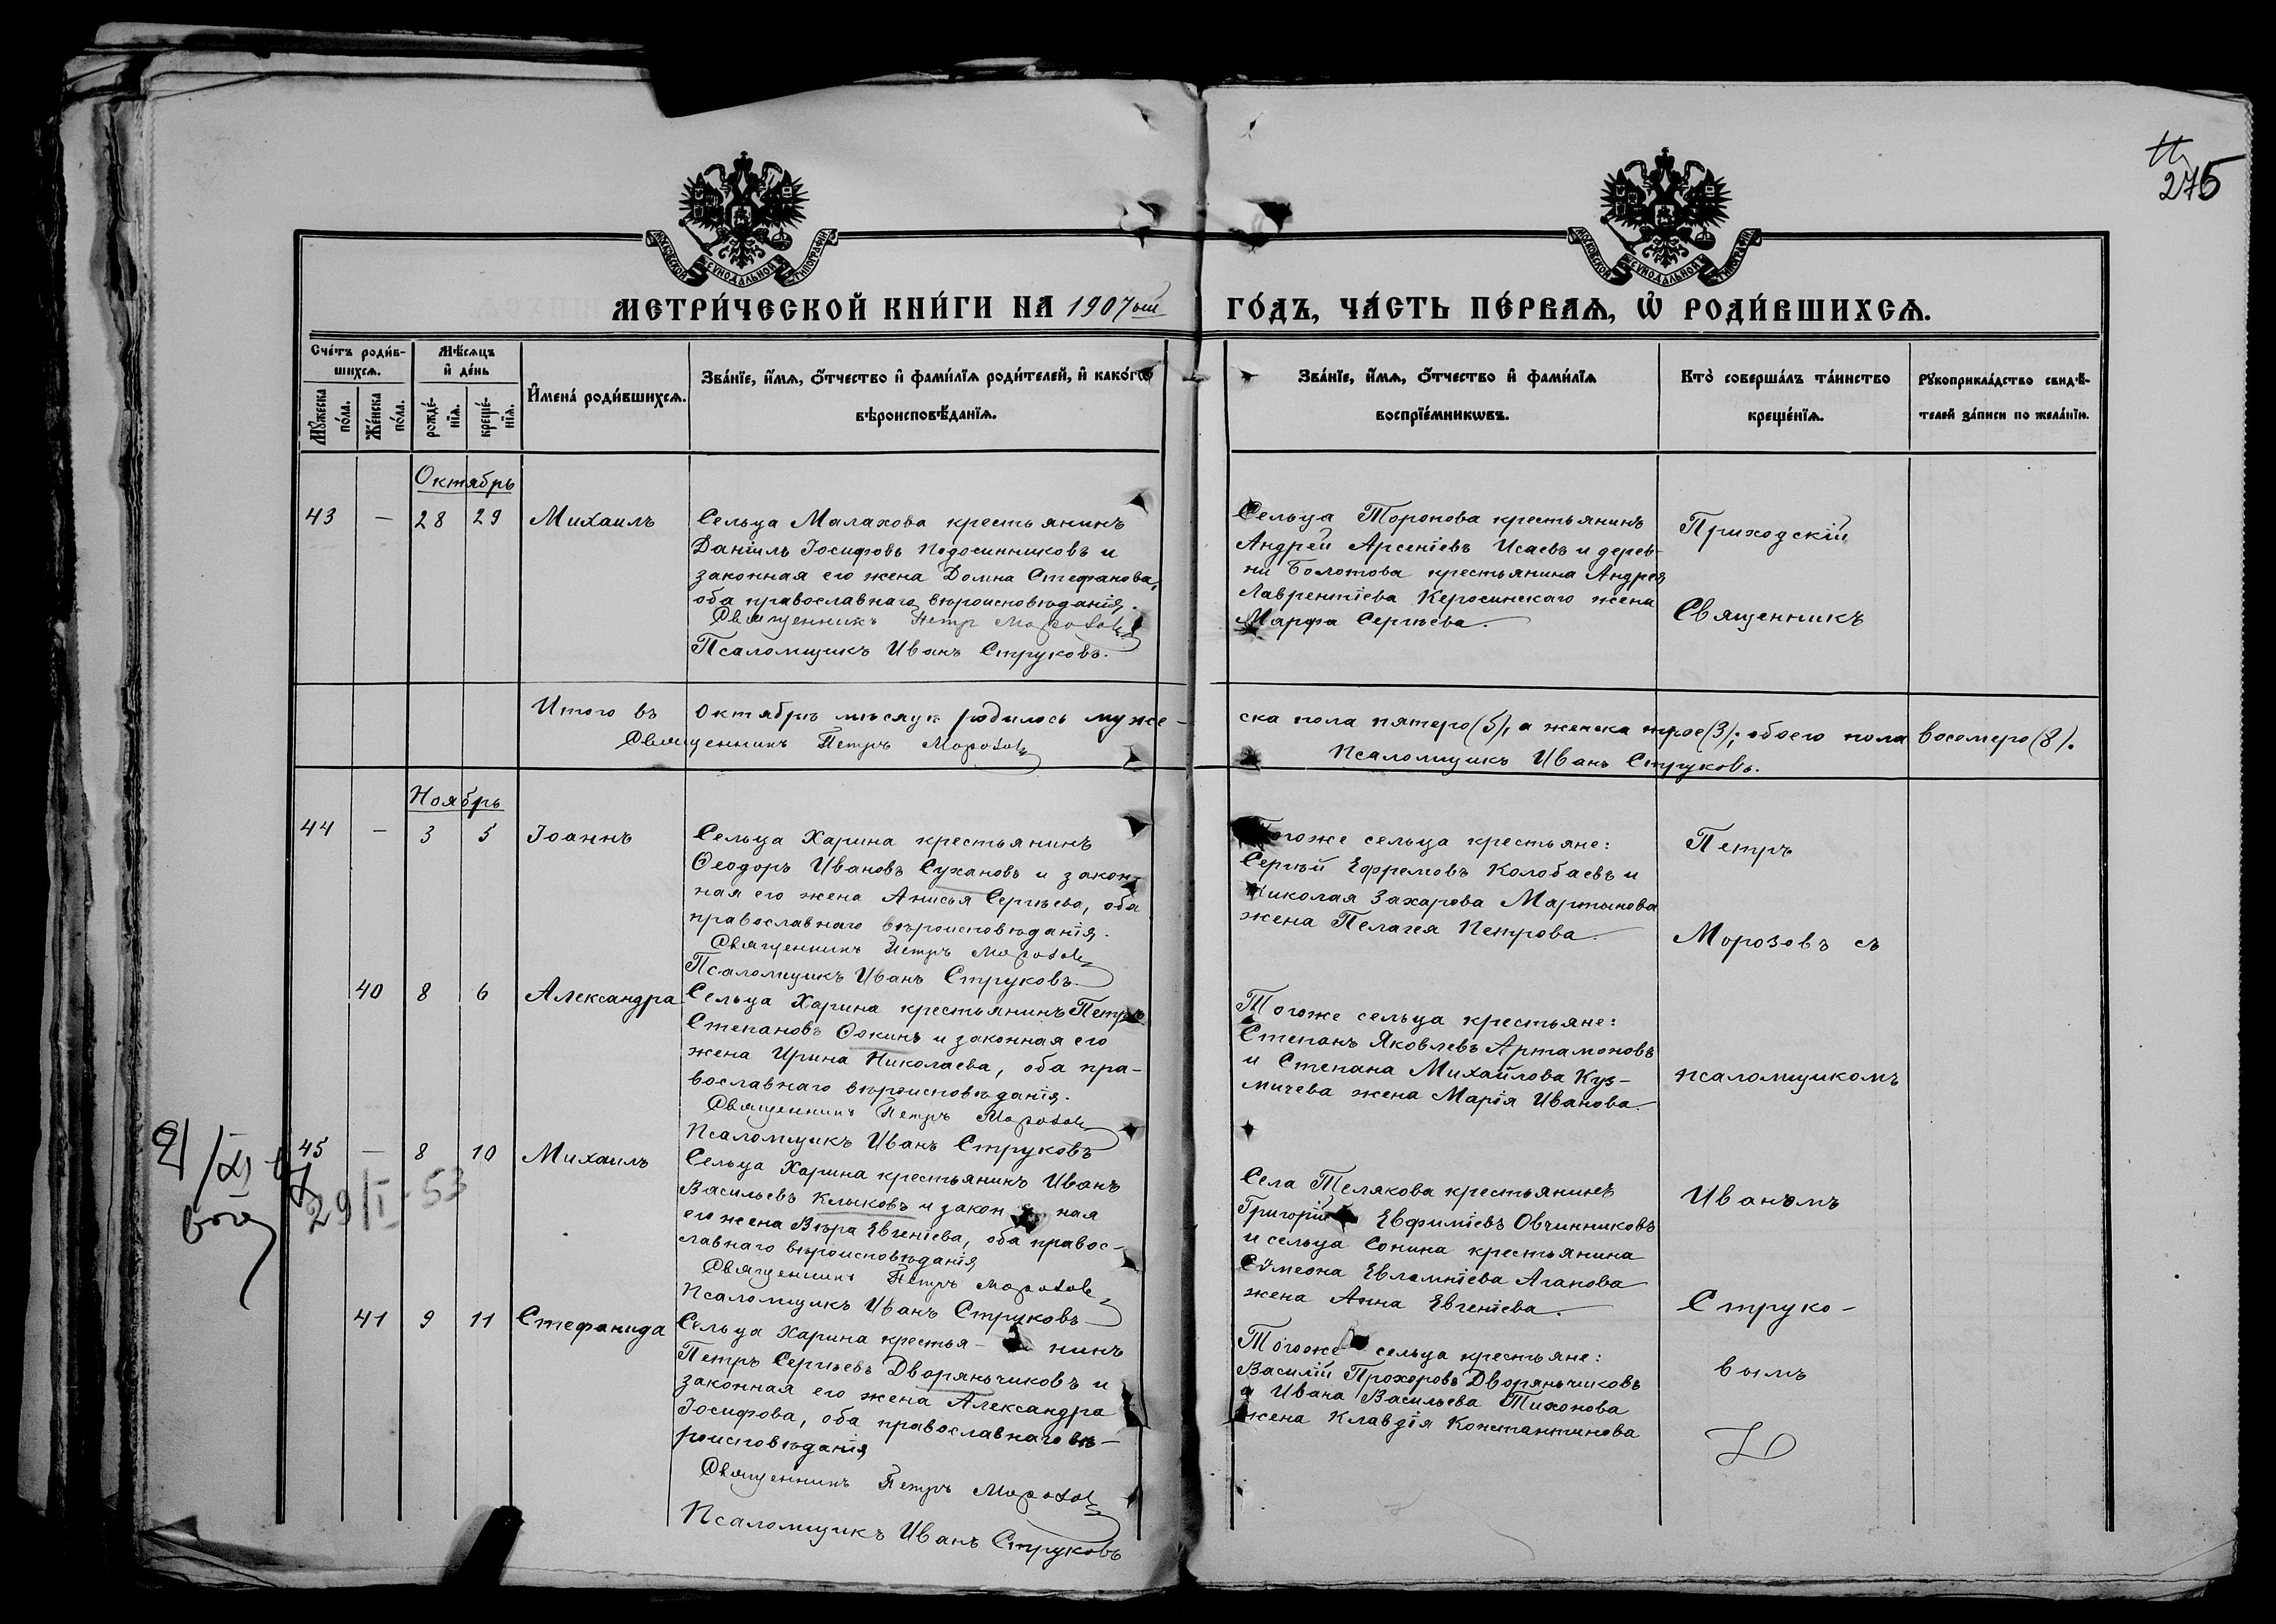 275
МОСКОВСКОЙ СѴНОДАЛЬНОЙ ТИПОГРАФІИ
МОСКОВСКОЙ СѴНОДАЛЬНОЙ ТИПОГРАФІИ
МЕТРИ́ЧЕСКОЙ КНИ́ГИ НА 1907 ый ГО́ДЪ, ЧА́СТЬ ПЕ́РВАѦ, Ѽ РОДИ́ВШИХСѦ.
Сче́тъ роди́в-
шихсѧ.
Мꙋ́жеска по́ла.
Же́нска по́ла.
Мѣ́сѧцъ
и҆ де́нь
рожде́-
нїѧ.
креще́-
нїѧ.
И҆мена̀ роди́вшихсѧ.
Зва́нїе, и҆́мѧ, ѻ҆́тчество и҆ фами́лїѧ роди́телей, и҆ како́гѡ
вѣроисповѣ́данїѧ.
Зва́нїе, и҆́мѧ, ѻ҆́тчество и҆ фами́лїѧ
воспрїе́мникѡвъ.
Кто̀ соверша́лъ та́инство
креще́нїѧ.
Рꙋкоприкла́дство свидѣ́-
телей за́писи по жела́нїю.
Октябрь
43 — 28 29 Михаилъ
Сельца Малахова крестьянинъ
Даніилъ Іосифовъ Подосинниковъ и
законная его жена Домна Стефанова,
оба православнаго вѣроисповѣданія.
Священникъ Петръ Морозовъ
Псаломщикъ Иванъ Струковъ.
Сельца Торопова крестьянинъ
Андрей Арсеніевъ Исаевъ и дерев-
ни Болотова крестьянина Андрея
Лаврентіева Керосинскаго жена
Марфа Сергѣева.
Приходскій
Священникъ
Итого въ Октябрѣ мѣсяцѣ родилось муже-
ска пола пятеро (5), а женска трое (3); обоего пола восемеро (8).
Священникъ Петръ Морозовъ
Псаломщикъ Иванъ Струковъ.
Ноябрь
44 — 3 5 Іоаннъ
Сельца Харина крестьянинъ
Ѳеодоръ Ивановъ Сухановъ и закон-
ная его жена Анисья Сергѣева, оба
православнаго вѣроисповѣданія.
Священникъ Петръ Морозовъ
Псаломщикъ Иванъ Струковъ.
Тогоже сельца крестьяне:
Сергѣй Ефремовъ Колобаевъ и
Николая Захарова Мартынова
жена Пелагея Петрова.
Петръ
Морозовъ съ
40 8 6 Александра
Сельца Харина крестьянинъ Петръ
Степановъ Ѳокинъ и законная его
жена Ирина Николаева, оба пра-
вославнаго вѣроисповѣданія.
Священникъ Петръ Морозовъ
Псаломщикъ Иванъ Струковъ
Тогоже сельца крестьяне:
Степанъ Яковлевъ Артамоновъ
и Степана Михайлова Куз-
мичева жена Марія Иванова.
псаломщикомъ
29/I-53
45 — 8 10 Михаилъ
Сельца Харина крестьянинъ Иванъ
Васильевъ Клыковъ и закон ная
его жена Вѣра Евгеніева, оба правос-
славнаго вѣроисповѣданія
Священникъ Петръ Морозовъ
Псаломщикъ Иванъ Струковъ
Села Телякова крестьянинъ
Григорій Евфиміевъ Овчинниковъ
и сельца Сонина крестьянина
Сѵмеона Евлампіева Агапова
жена Анна Евгеніева.
Иваномъ
Струко-
41 9 11 Стефанида
Сельца Харина крестья- нинъ
Петръ Сергѣевъ Дворянчиковъ и
законная его жена Александра
Іосифова, оба православнаго вѣ-
роисповѣданія
Священникъ Петръ Морозовъ
Псаломщикъ Иванъ Струковъ
Тогоже сельца крестьяне:
Василій Прохоровъ Дворянчиковъ
и Ивана Васильева Тихонова
жена Клавдія Константинова
вымъ